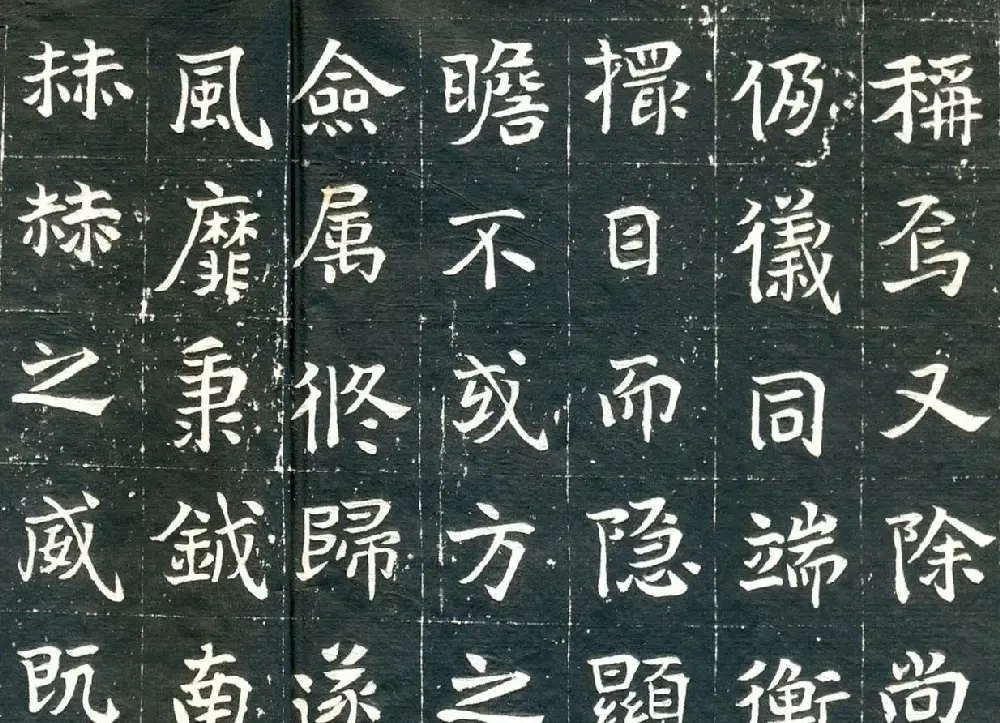 稱焉又除尚
仍儀同端衡
目而隐顯
瞻不或方之
僉属攸歸遂
風靡秉鉞南
赫赫之威既